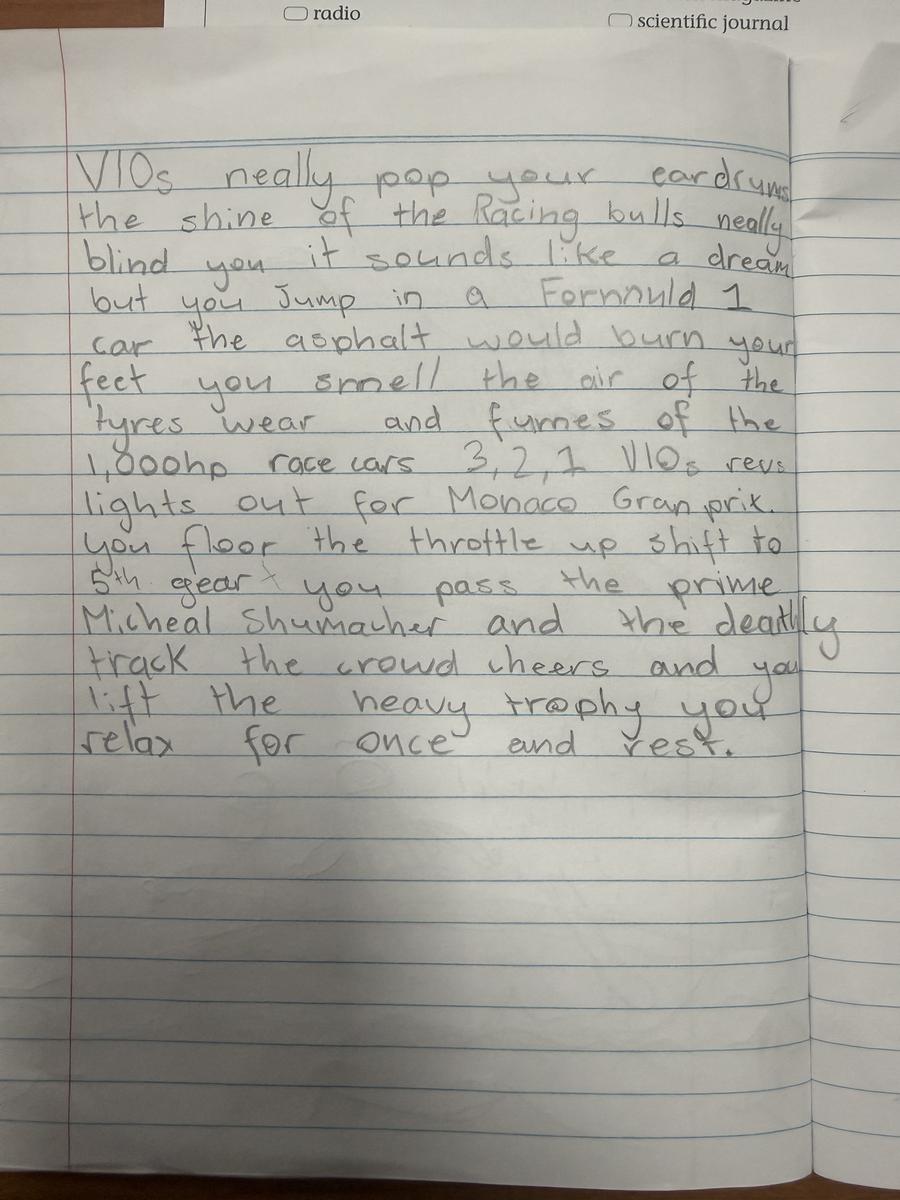 radio
scientific journal
V10s neally pop your eardrums
the shine of the Racing bulls neally
blind you it sounds like a dream
but you Jump in a Fornnuld 1
car the asphalt would burn your
feet you smell the air of the
tyres wear and fumes of the
1,000hp race cars 3,2,1 V10s revs
lights out for Monaco Gran prix.
you floor the throttle up shift to
5th gear you pass the prime
Micheal Shumacher and the deathly
track the crowd cheers and you
lift the heavy trophy you
relax for once and rest.